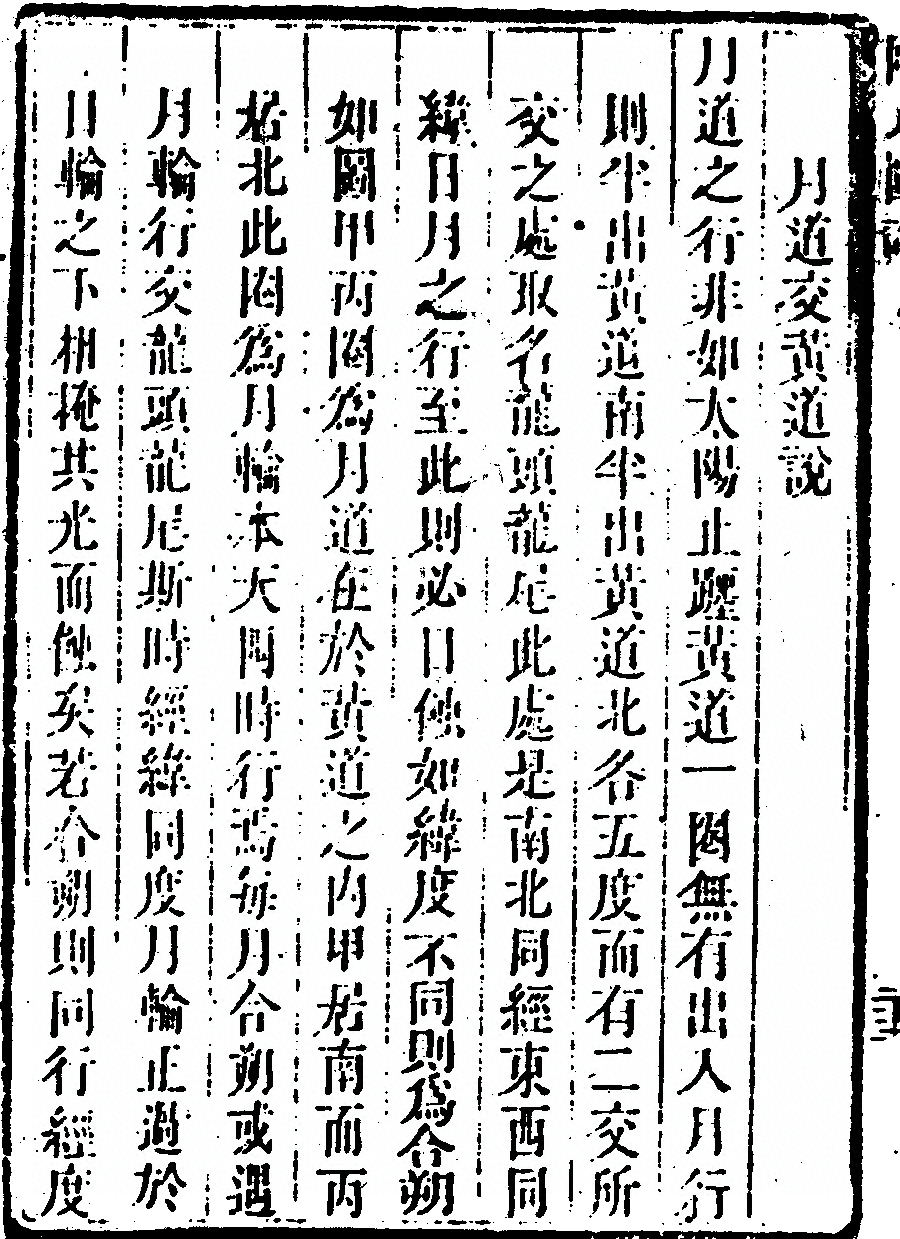 月道交黃道說
月道之行非如太陽止躔黃道一圏無有出入月行
則半出黃道南半出黃道北各五度而有二交所
交之處取名龍頭龍尾此處是南北同經東西同
緯日月之行至此則必日蝕如緯度不同則為合朔
如圖甲丙圏為月道在於黃道之內甲居南而丙
居北此圏為月輪本天四時行焉每月合朔或遇
月輪行交龍頭龍尾斯時經緯同度月輪正過於
日輪之下相掩其光而蝕矣若合朔則同行經度